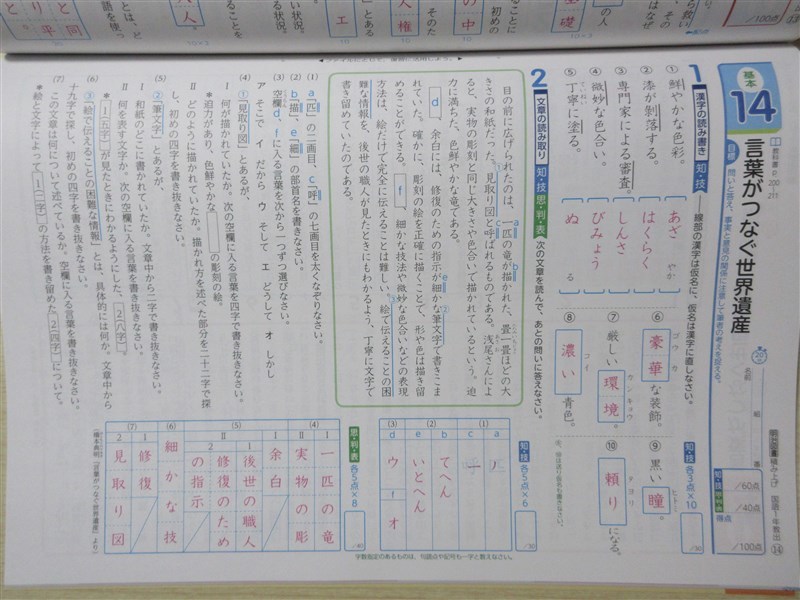 基本
14
言葉がつなぐ世界遺産
教科書 p. 200 211
目標 問いと答え、事実と意見の関係に注意して筆者の考えを捉える。
/60点
/40点
得点
/100点
1 漢字の読み書き 知・技 ――線部の漢字は仮名に、仮名は漢字に直しなさい。
各3点×10
/30
① 鮮やかな色彩。
あざ やか
② 漆が剝落する。
はくらく
③ 専門家による審査。
しんさ
④ 微妙な色合い。
びみょう
⑤ 丁寧に塗る。
ぬ る
⑥ 豪華な装飾。
ゴウカ
⑦ 厳しい環境。
カンキョウ
⑧ 濃い青色。
コイ
⑨ 黒い瞳。
ヒトミ
⑩ 頼りになる。
タヨリ
2 文章の読み取り 知・技 思・判・表 次の文章を読んで、あとの問いに答えなさい。
知・技 各5点×6
/30
思・判・表 各5点×8
/40
目の前に広げられたのは、一匹の竜が描かれた、畳一畳ほどの大
きさの和紙だった。見取り図と呼ばれるものである。浅尾さんによ
ると、実物の彫刻と同じ大きさや色合いで描かれているという。迫
力に満ちた、色鮮やかな竜である。
d、余白には、修復のための指示が細かな筆文字で書きこま
れていた。確かに、彫刻の絵を正確に描くことで、形や色は描き留
めることができる。f、細かな技法や微妙な色合いなどの表現
方法は、絵だけで完全に伝えることは難しい。絵で伝えることの困
難な情報を、後世の職人が見たときにもわかるよう、丁寧に文字で
書き留めていたのである。
(1) a「匹」の二画目、c「呼」の七画目を太くなぞりなさい。
(2) b「描」、e「細」の部首名を書きなさい。
(3) 空欄d、fに入る言葉を次から一つずつ選びなさい。
ア そこで イ だから ウ そして エ どうして オ しかし
(4) ①「見取り図」とあるが、
Ⅰ 何が描かれていたか。次の空欄に入る言葉を四字で書き抜きなさい。
＊迫力があり、色鮮やかな の彫刻の絵。
Ⅱ どのように描かれていたか。描かれ方を述べた部分を二十二字で探
し、初めの四字を書き抜きなさい。
(5) ②「筆文字」とあるが、
Ⅰ 和紙のどこに書かれていたか。文章中から二字で書き抜きなさい。
Ⅱ 何を表す文字か。次の空欄に入る言葉を書き抜きなさい。
＊1(五字)が見たときにわかるようにした、2(八字)。
(6) ③「絵で伝えることの困難な情報」とは、具体的には何か。文章中から
十九字で探し、初めの四字を書き抜きなさい。
(7) この文章は何について述べているか。空欄に入る言葉を書き抜きなさい。
＊絵と文字によって1(二字)の方法を書き留めた2(四字)について。
(1)
a
c
(2)
b てへん
e いとへん
(3)
d ウ
f オ
(4)
Ⅰ 一匹の竜
Ⅱ 実物の彫
(5)
Ⅰ 余白
Ⅱ
1 後世の職人
2 修復のための指示
(6) 細かな技
(7)
1 修復
2 見取り図
(橋本典明「言葉がつなぐ世界遺産」より)
字数指定のあるものは、句読点や記号も一字と数えなさい。